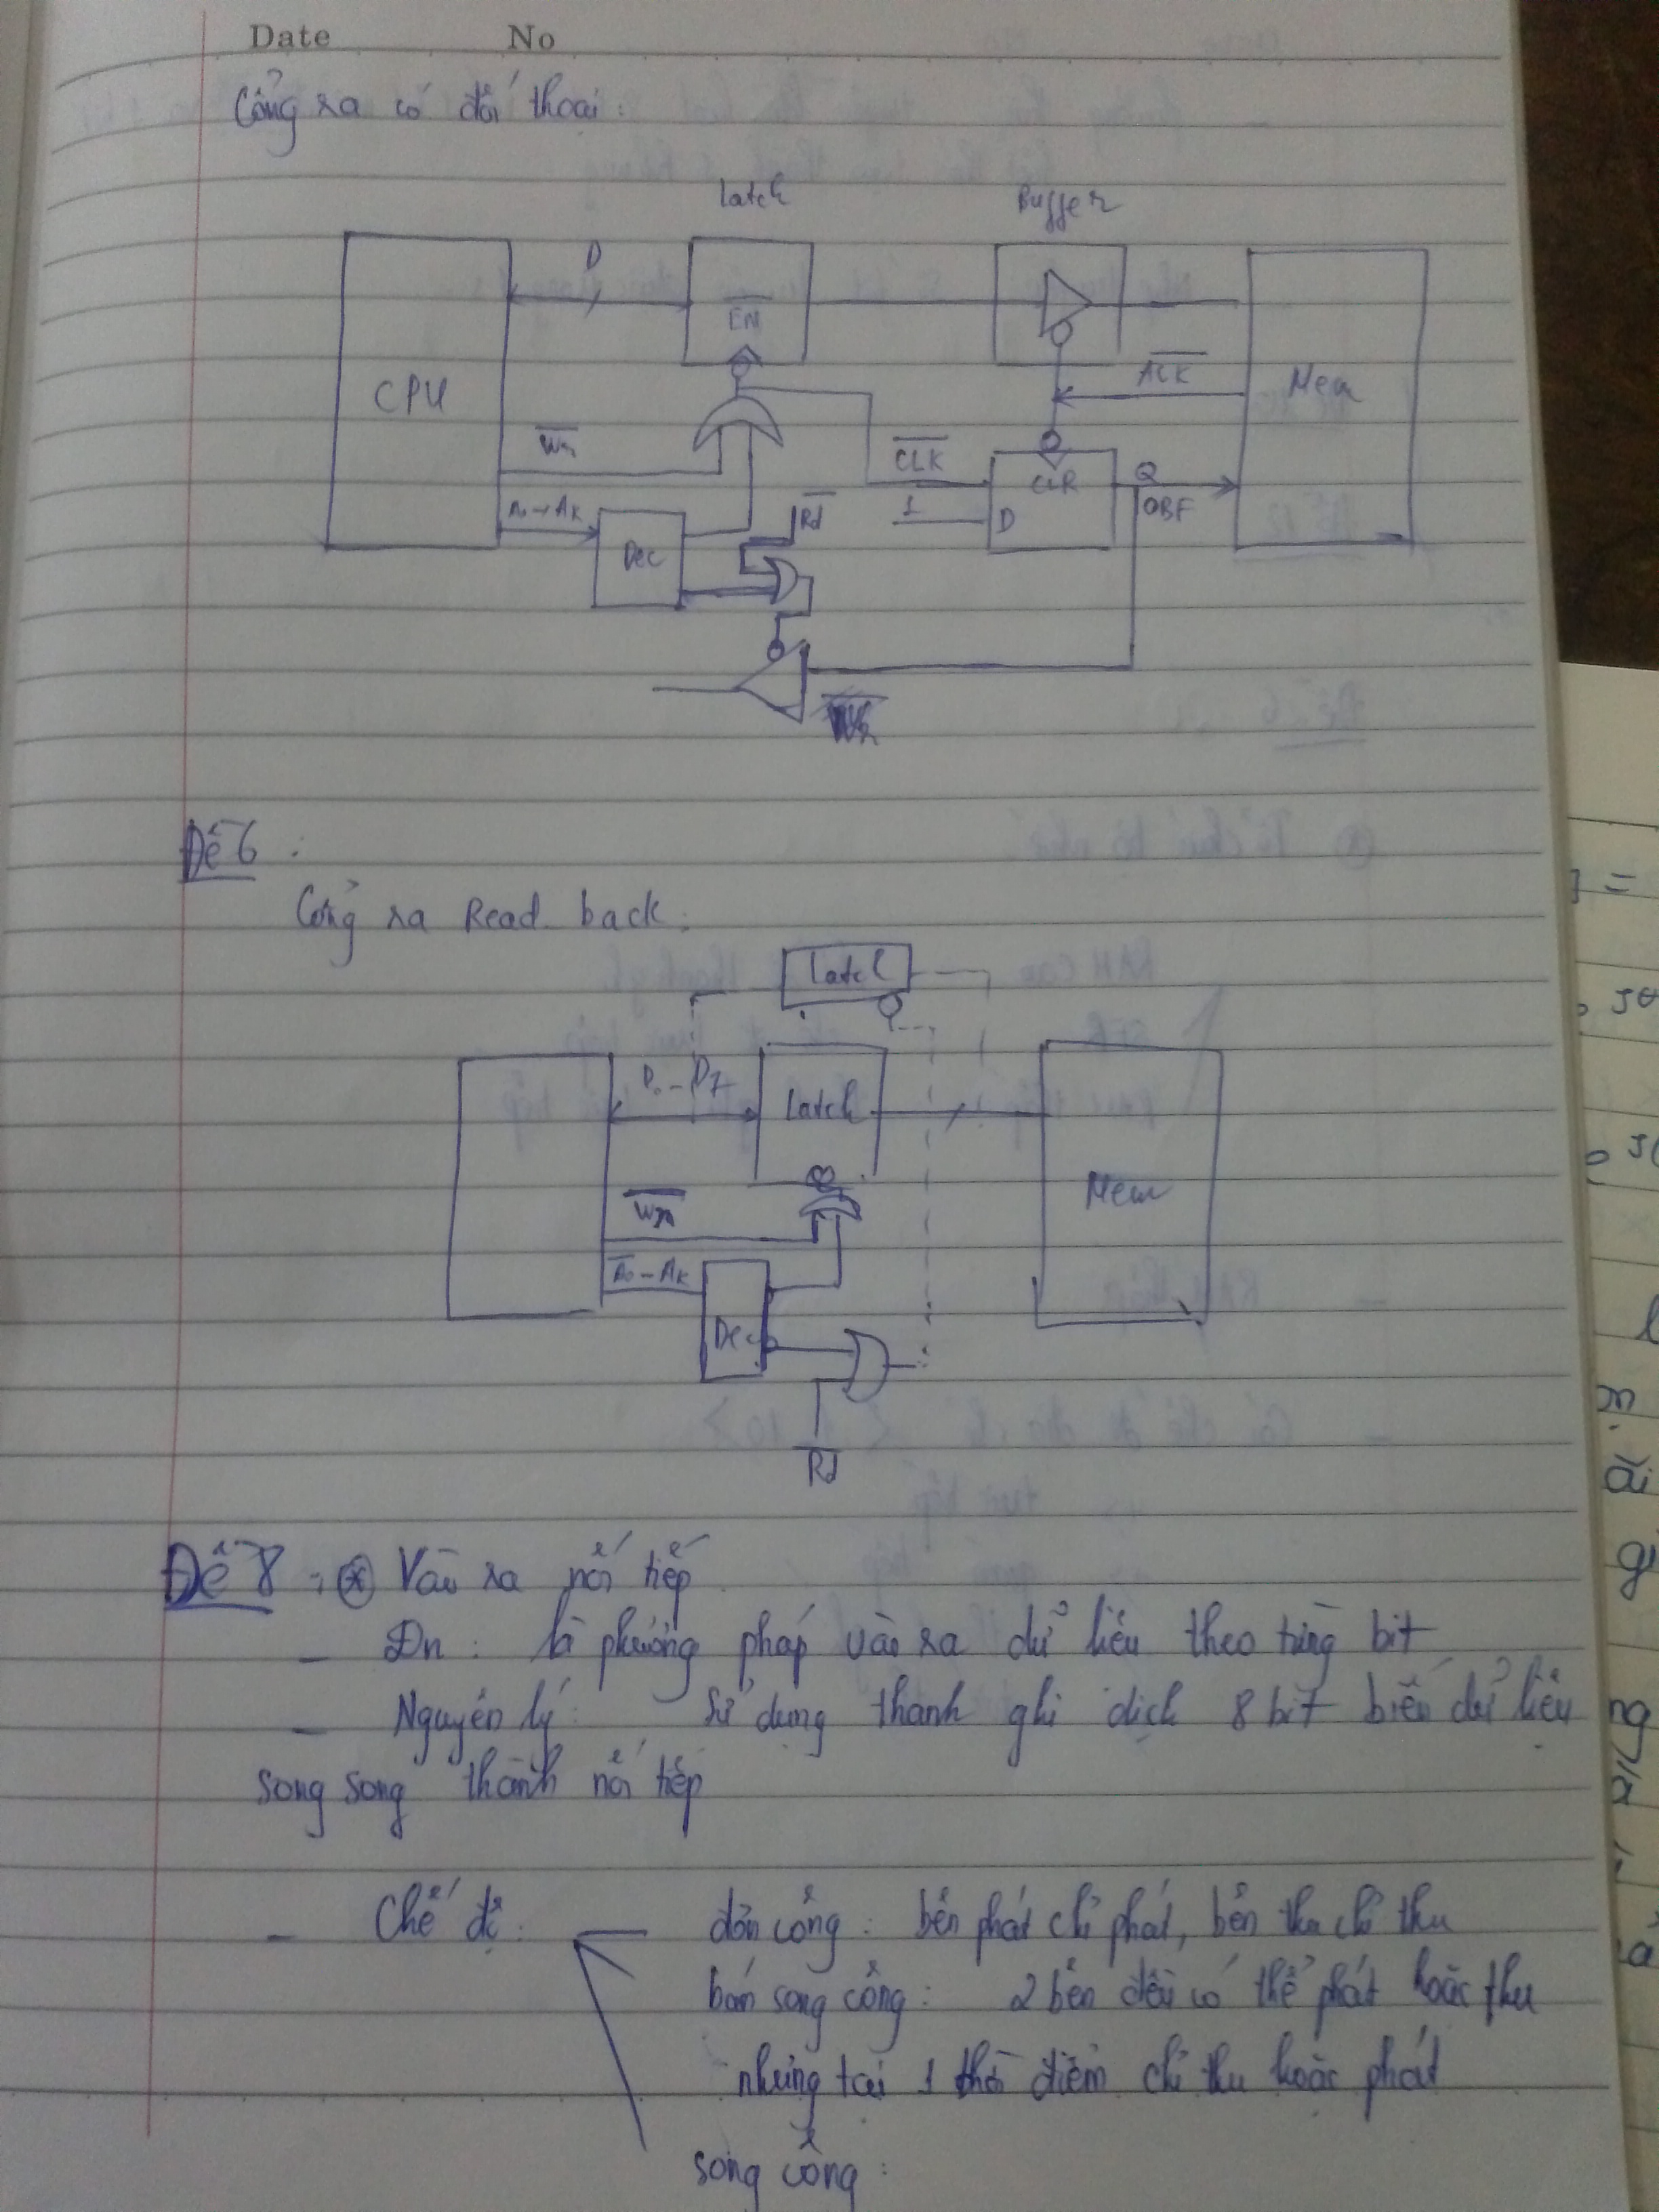 Date No
Cổng ra có đối thoại:
Latch Buffer
D
EN
CPU
ACK
Mem
Wr
CLK
CLR
Q
A0 → AK
Rd
1
D
OBF
Dec
Đề 6 :
Cổng ra Read back:
Latch
D0 - D7
Latch
Mem
Wr
A0 - AK
Dec
Rd
Đề 8 : * Vào ra nối tiếp
- Đn : là phương pháp vào ra dữ liệu theo từng bit
- Nguyên lý : Sử dụng thanh ghi dịch 8 bit biến dữ liệu
song song thành nối tiếp
- Chế độ : đơn công : bên phát chỉ phát, bên thu chỉ thu
bán song công : 2 bên đều có thể phát hoặc thu
nhưng tại 1 thời điểm chỉ thu hoặc phát
song công :